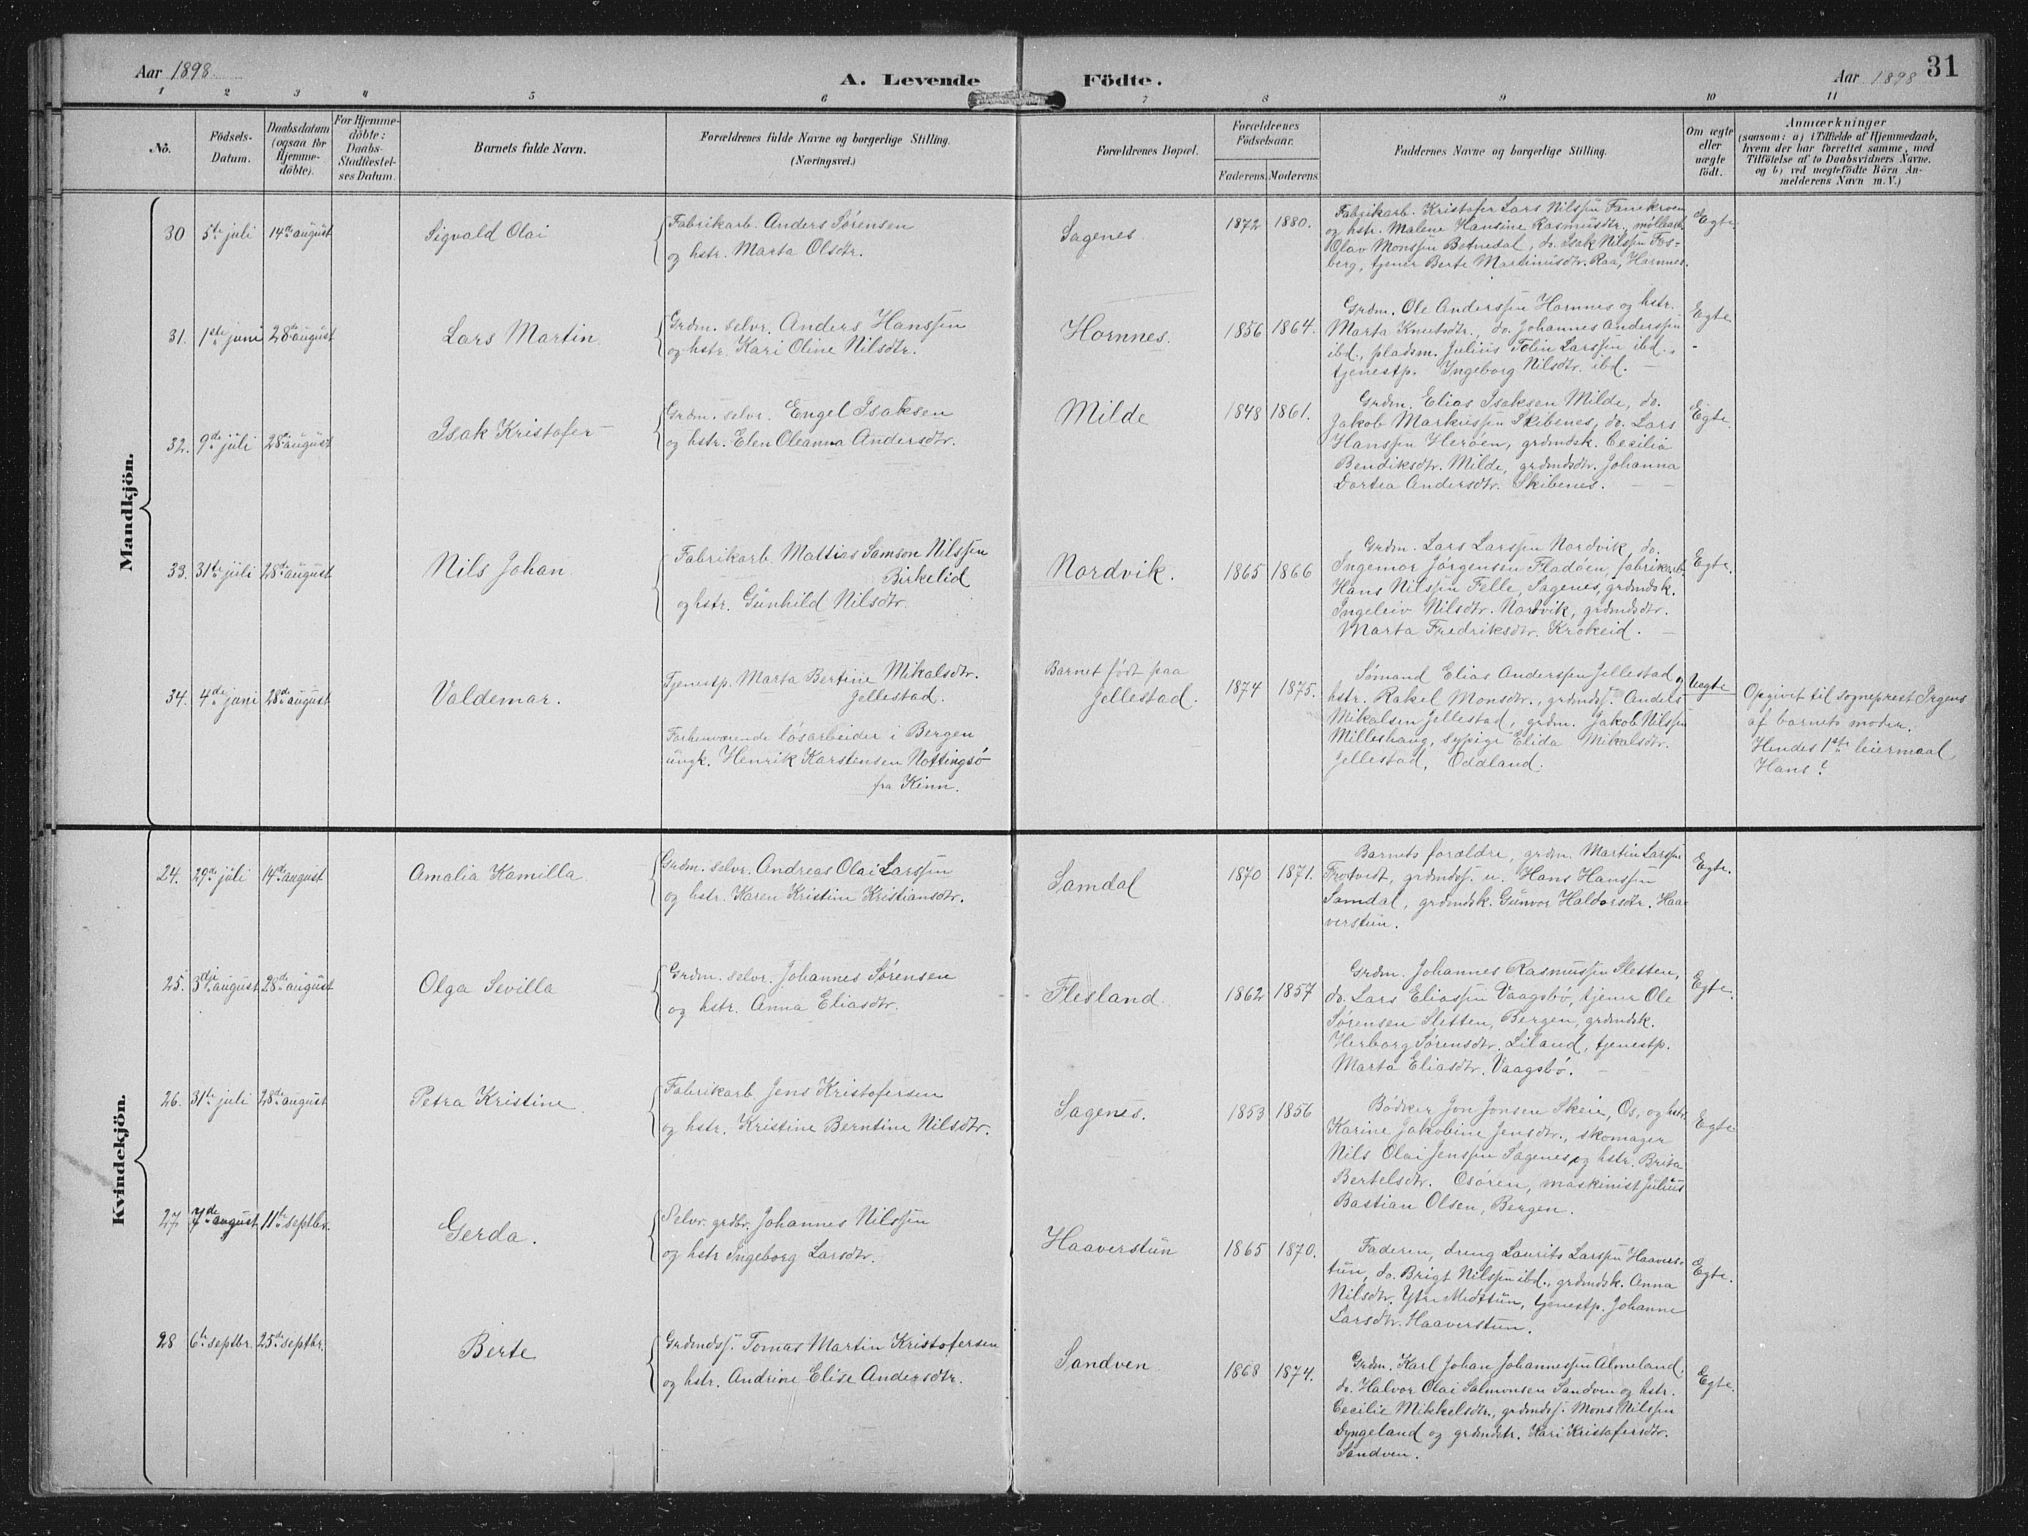 Aar 1898.
A. Levende Födte.
Aar 1898
31
1 2 3 4 5 6 7 8 9 10 11
No.
Födsels-
Datum.
Daabsdatum
(ogsaa for
Hjemme-
døbte).
For Hjemme-
døbte:
Daabs-
Stadfæstel-
ses Datum.
Barnets fulde Navn.
Forældrenes fulde Navne og borgerlige Stilling.
(Næringsvei.)
Forældrenes Bopæl.
Forældrenes
Födselsaar.
Faderens. Moderens.
Faddernes Navne og borgerlige Stilling.
Om ægte
eller
uægte
født.
Anmærkninger
(saasom: a) i Tilfælde af Hjemmedaab,
hvem der har forrettet samme, med
Tilføielse af to Daabsvidners Navne.
og b) ved uegtefødte Börn An-
melderens Navn m. V.)
Mandkjön.
30 5te juli 14de august
Sigvald Olai
Fabrikarb. Anders Sørensen
og hstr. Marta Olsdtr.
Sagenes.
1872 1880.
Fabrikarb. Kristofer Lars Nilssen Fanekroen
og hstr. Malene Hansine Rasmusdtr., møllearb.
Olav Monssen Botnedal, do. Isak Nilssen Fos-
berg, tjener Berte Martinusdtr. Raa, Hornnes.
Egte
31. 1ste juni 28de august
Lars Martin
Grdm. selvr. Anders Hanssen
og hstr. Kari Oline Nilsdtr.
Hornnes.
1856 1864.
Grdm. Ole Anderssen Hornnes og hstr.
Marta Knutsdtr., do. Johannes Anderssen
ibd., pladsm. Julius Tolin Larssen ibd.,
tjenestp. Ingeborg Nilsdtr. ibd. —
Egte
32. 9de juli 28de august
Isak Kristofer
Grdm. selvr. Engel Isaksen
og hstr. Elen Oleanna Andersdtr.
Milde
1848 1861.
Grdm. Elias Isaksen Milde, do.
Jakob Markussen Skibenes, do. Lars
Hanssen Herøen, grdmdsk. Cecilia
Bendiksdtr. Milde, grdmdsdtr. Johanna
Dortea Andersdtr. Skibenes. —
Egte.
33. 31te juli 28de august
Nils Johan
Fabrikarb. Mattias Samson Nilssen
Birkelid
og hstr. Gunhild Nilsdtr.
Nordvik.
1865 1866
Grdm. Lars Larssen Nordvik, do.
Ingemor Jørgensen Fladøen, fabrikarb.
Hans Nilssen Felle, Sagenes, grdmdsk.
Ingeleiv Nilsdtr. Nordvik, grdmdsdtr.
Marta Fredriksdtr. Krokeid. —
Egte.
34. 4de juni 28de august
Valdemar.
Tjenestp. Marta Bertine Mikalsdtr.
Jellestad.
Forhenværende løsarbeider i Bergen
ungk. Henrik Karstensen Nottingsø
fra Kinn.
Barnet født paa
Jellestad.
1874 1875.
Sømand Elias Anderssen Jellestad og
hstr. Rakel Monsdtr., grdmdss. Anders
Mikalsen Jellestad, grdm. Jakob Nilssen
Milleshaug, sypige Elida Mikalsdtr.
Jellestad, Oddland.
Uegte
Opgivet til sogneprest Irgens
af barnets moder.
Hendes 1ste leiermaal
Hans?
Kvindekjön.
24. 29de juli 14de august
Amalia Kamilla.
Grdm. selvr. Andreas Olai Larssen
og hstr. Karen Kristine Kristiansdtr.
Samdal
1870 1871.
Barnets forældre, grdm. Martin Larssen
Frotvedt, grdmdss. u. Hans Hanssen
Samdal, grdmdsk. Gunvor Haldorsdtr. Haa-
verstun.
Egte.
25. 3dje august 28de august
Olga Sevilla
Grdm. selvr. Johannes Sørensen
og hstr. Anna Eliasdtr.
Flesland.
1862 1857
Grdm. Johannes Rasmussen Sletten,
do. Lars Eliassen Vaagsbø, tjener Ole
Sørensen Sletten, Bergen, grdmdsk.
Herborg Sørensdtr. Liland, tjenestp.
Marta Eliasdtr. Vaagsbø. —
Egte.
26. 31te juli 28de august
Petra Kristine.
Fabrikarb. Jens Kristofersen
og hstr. Kristine Berntine Nilsdtr.
Sagenes.
1853 1856
Bødker Jon Jonsen Skeie, Os, og hstr.
Karine Jakobine Jensdtr., skomager
Nils Olai Jenssen Sagenes og hstr. Brita
Bertelsdtr. Osøren, maskinist Julius
Bastian Olsen, Bergen.
Egte
27. 7de august 11te septbr.
Gerda.
Selvr. grdbr. Johannes Nilssen
og hstr Ingeborg Larsdtr.
Haaverstun
1865 1870.
Faderen, dreng Laurits Larssen Haavers-
tun, do. Brigt Nilssen ibd., grdmdsk. Anna
Nilsdtr. Ytre Midttun, tjenestp. Johanne
Larsdtr. Haaverstun.
Egte.
28 6te septbr. 25de septbr.
Berte
Grdmdss. Tomas Martin Kristofersen
og hstr. Andrine Elise Andersdtr.
Sandven.
1868 1874.
Grdm. Karl Johan Johannessen Almeland,
do. Halvor Olai Salmonsen Sandven og hstr.
Cecilie Mikkelsdtr., grdmdss. Mons Nilssen
Dyngeland og grdmdstr. Kari Kristofersdtr.
Sandven.
Egte.